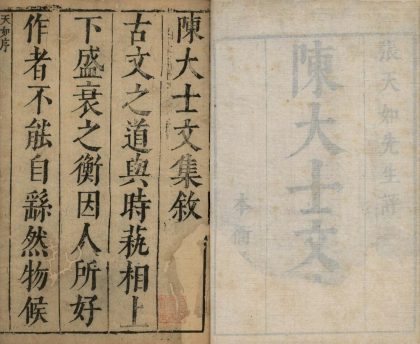 張天如先生評
陳大士文
本衙
陳大士文集敘
古文之道與時秇相上
下盛衰之衡因人所好
作者不能自繇然物候
天如序